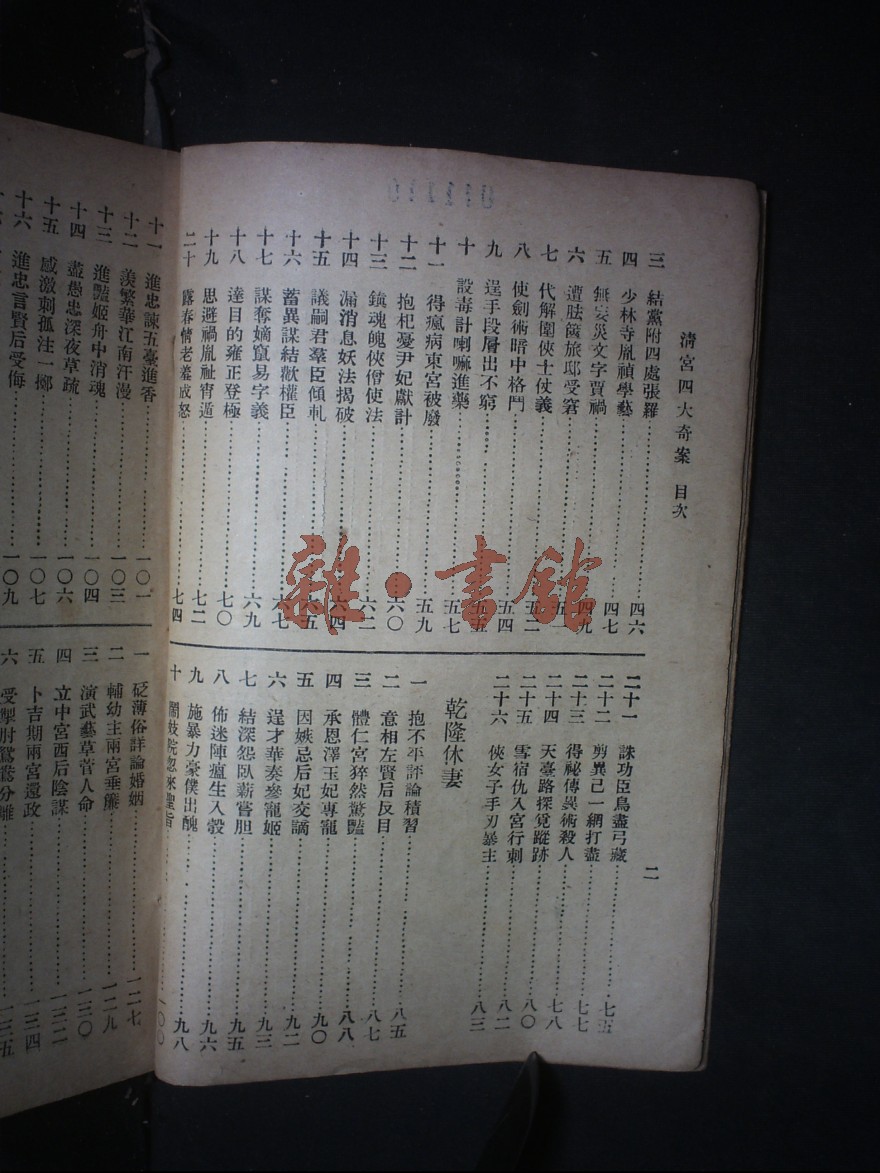 清宮四大奇案 目次
三 結黨附四處張羅 四六
四 少林寺胤禎學藝 四七
五 無妄災文字賈禍 四九
六 遭胠篋旅邸受窘
七 代解圍俠士仗義 五二
八 使劍術暗中格鬥 五四
九 逞手段層出不窮 五五
十 設毒計喇嘛進藥 五七
十一 得瘋病東宮被廢 五九
十二 抱杞憂尹妃獻計 六〇
十三 鎮魂魄俠僧使法 六二
十四 漏消息妖法揭破 六四
十五 議嗣君羣臣傾軋 六五
十六 蓄異謀結歡權臣 六七
十七 謀奪嫡竄易字義 六九
十八 達目的雍正登極 七〇
十九 思避禍胤祉宵遁 七二
二十 露春情老羞成怒 七四
二十一 誅功臣鳥盡弓藏 七五
二十二 剪異己一網打盡 七七
二十三 得祕傳異術殺人 七八
二十四 天臺路探覓蹤跡 八〇
二十五 雪宿仇入宮行刺 八二
二十六 俠女子手刃暴主 八三
乾隆休妻
一 抱不平評論積習 八五
二 意相左賢后反目 八七
三 體仁宮猝然驚豔 八八
四 承恩澤玉妃專寵 九〇
五 因嫉忌后妃交謫 九二
六 逞才華奏參寵姬 九三
七 結深怨臥薪嘗胆 九五
八 佈迷陣瘟生入彀 九六
九 施暴力豪僕出醜 九八
十 鬧妓院忽來聖旨 一〇〇
二
十一 進忠諫五臺進香 一〇一
十二 羨繁華江南汗漫 一〇三
十三 進豔姬舟中消魂 一〇四
十四 盡愚忠深夜草疏 一〇六
十五 感激刺孤注一擲 一〇七
十六 進忠言賢后受侮 一〇九
一 砭薄俗詳論婚姻 一二七
二 輔幼主兩宮垂簾 一二九
三 演武藝草菅人命 一三〇
四 立中宮西后陰謀 一三二
五 卜吉期兩宮還政 一三四
六 受掣肘鴛鴦分離 一三五